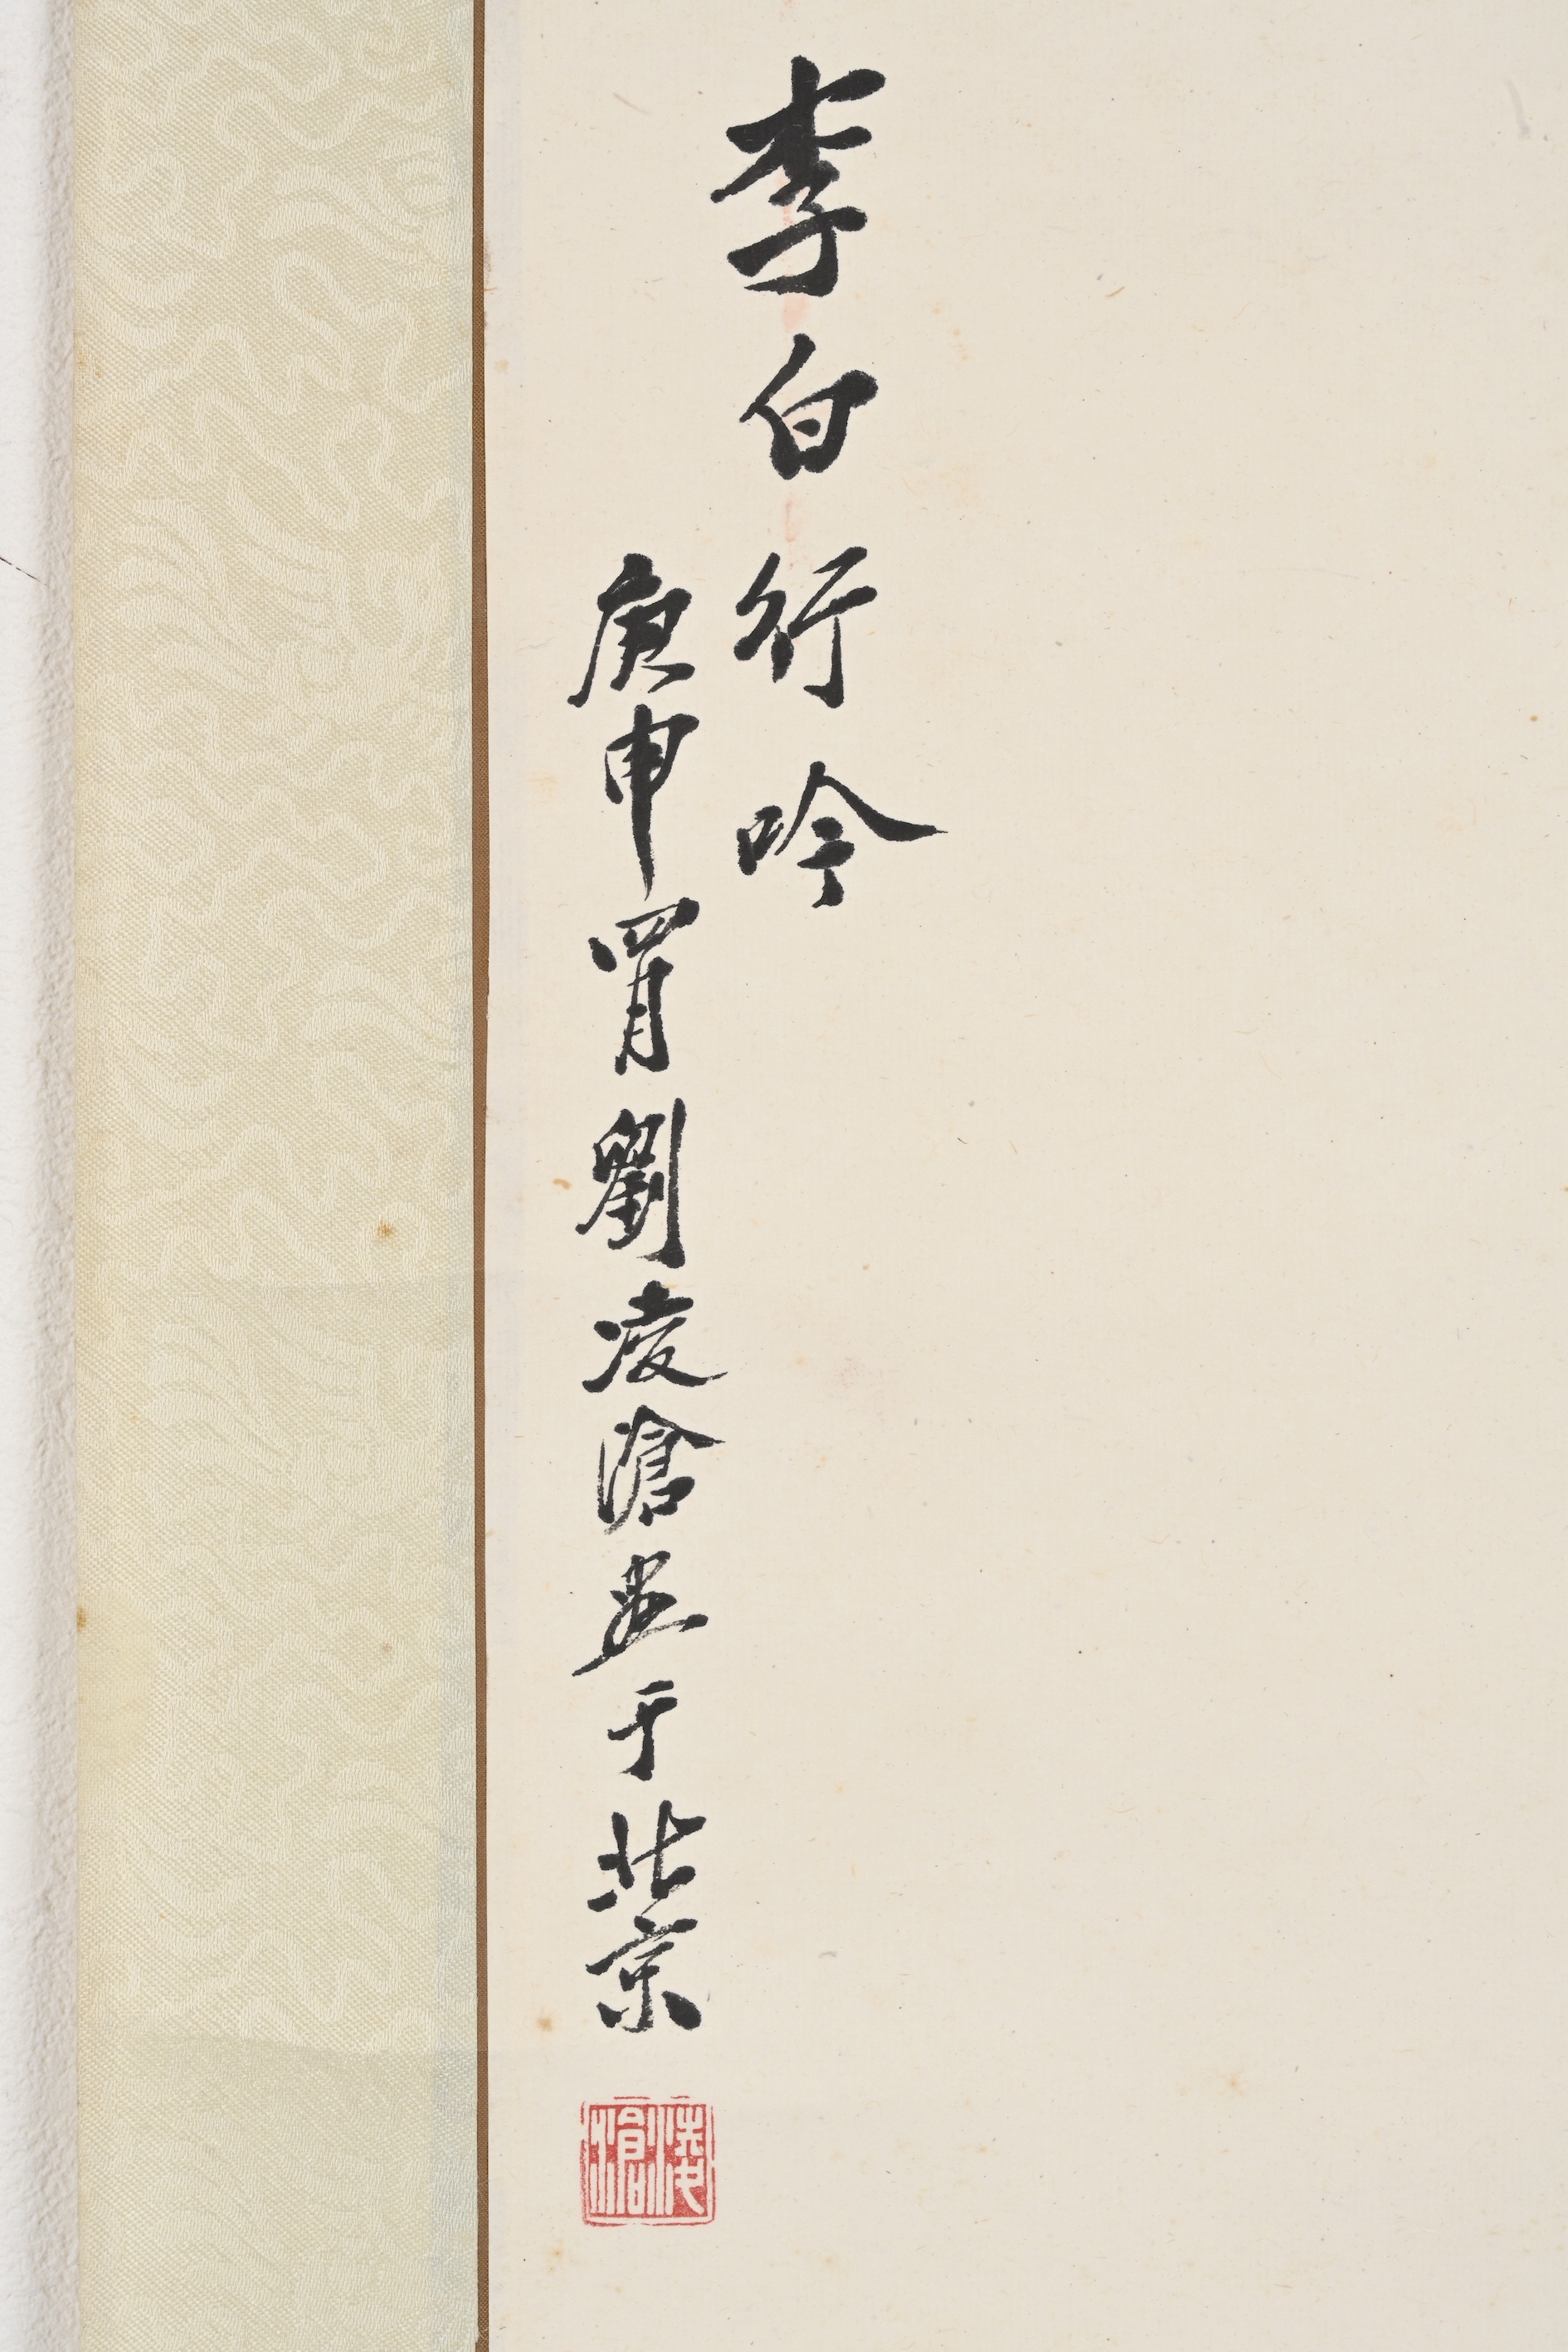 李白行吟
庚申四月劉凌滄畫于北京
凌滄